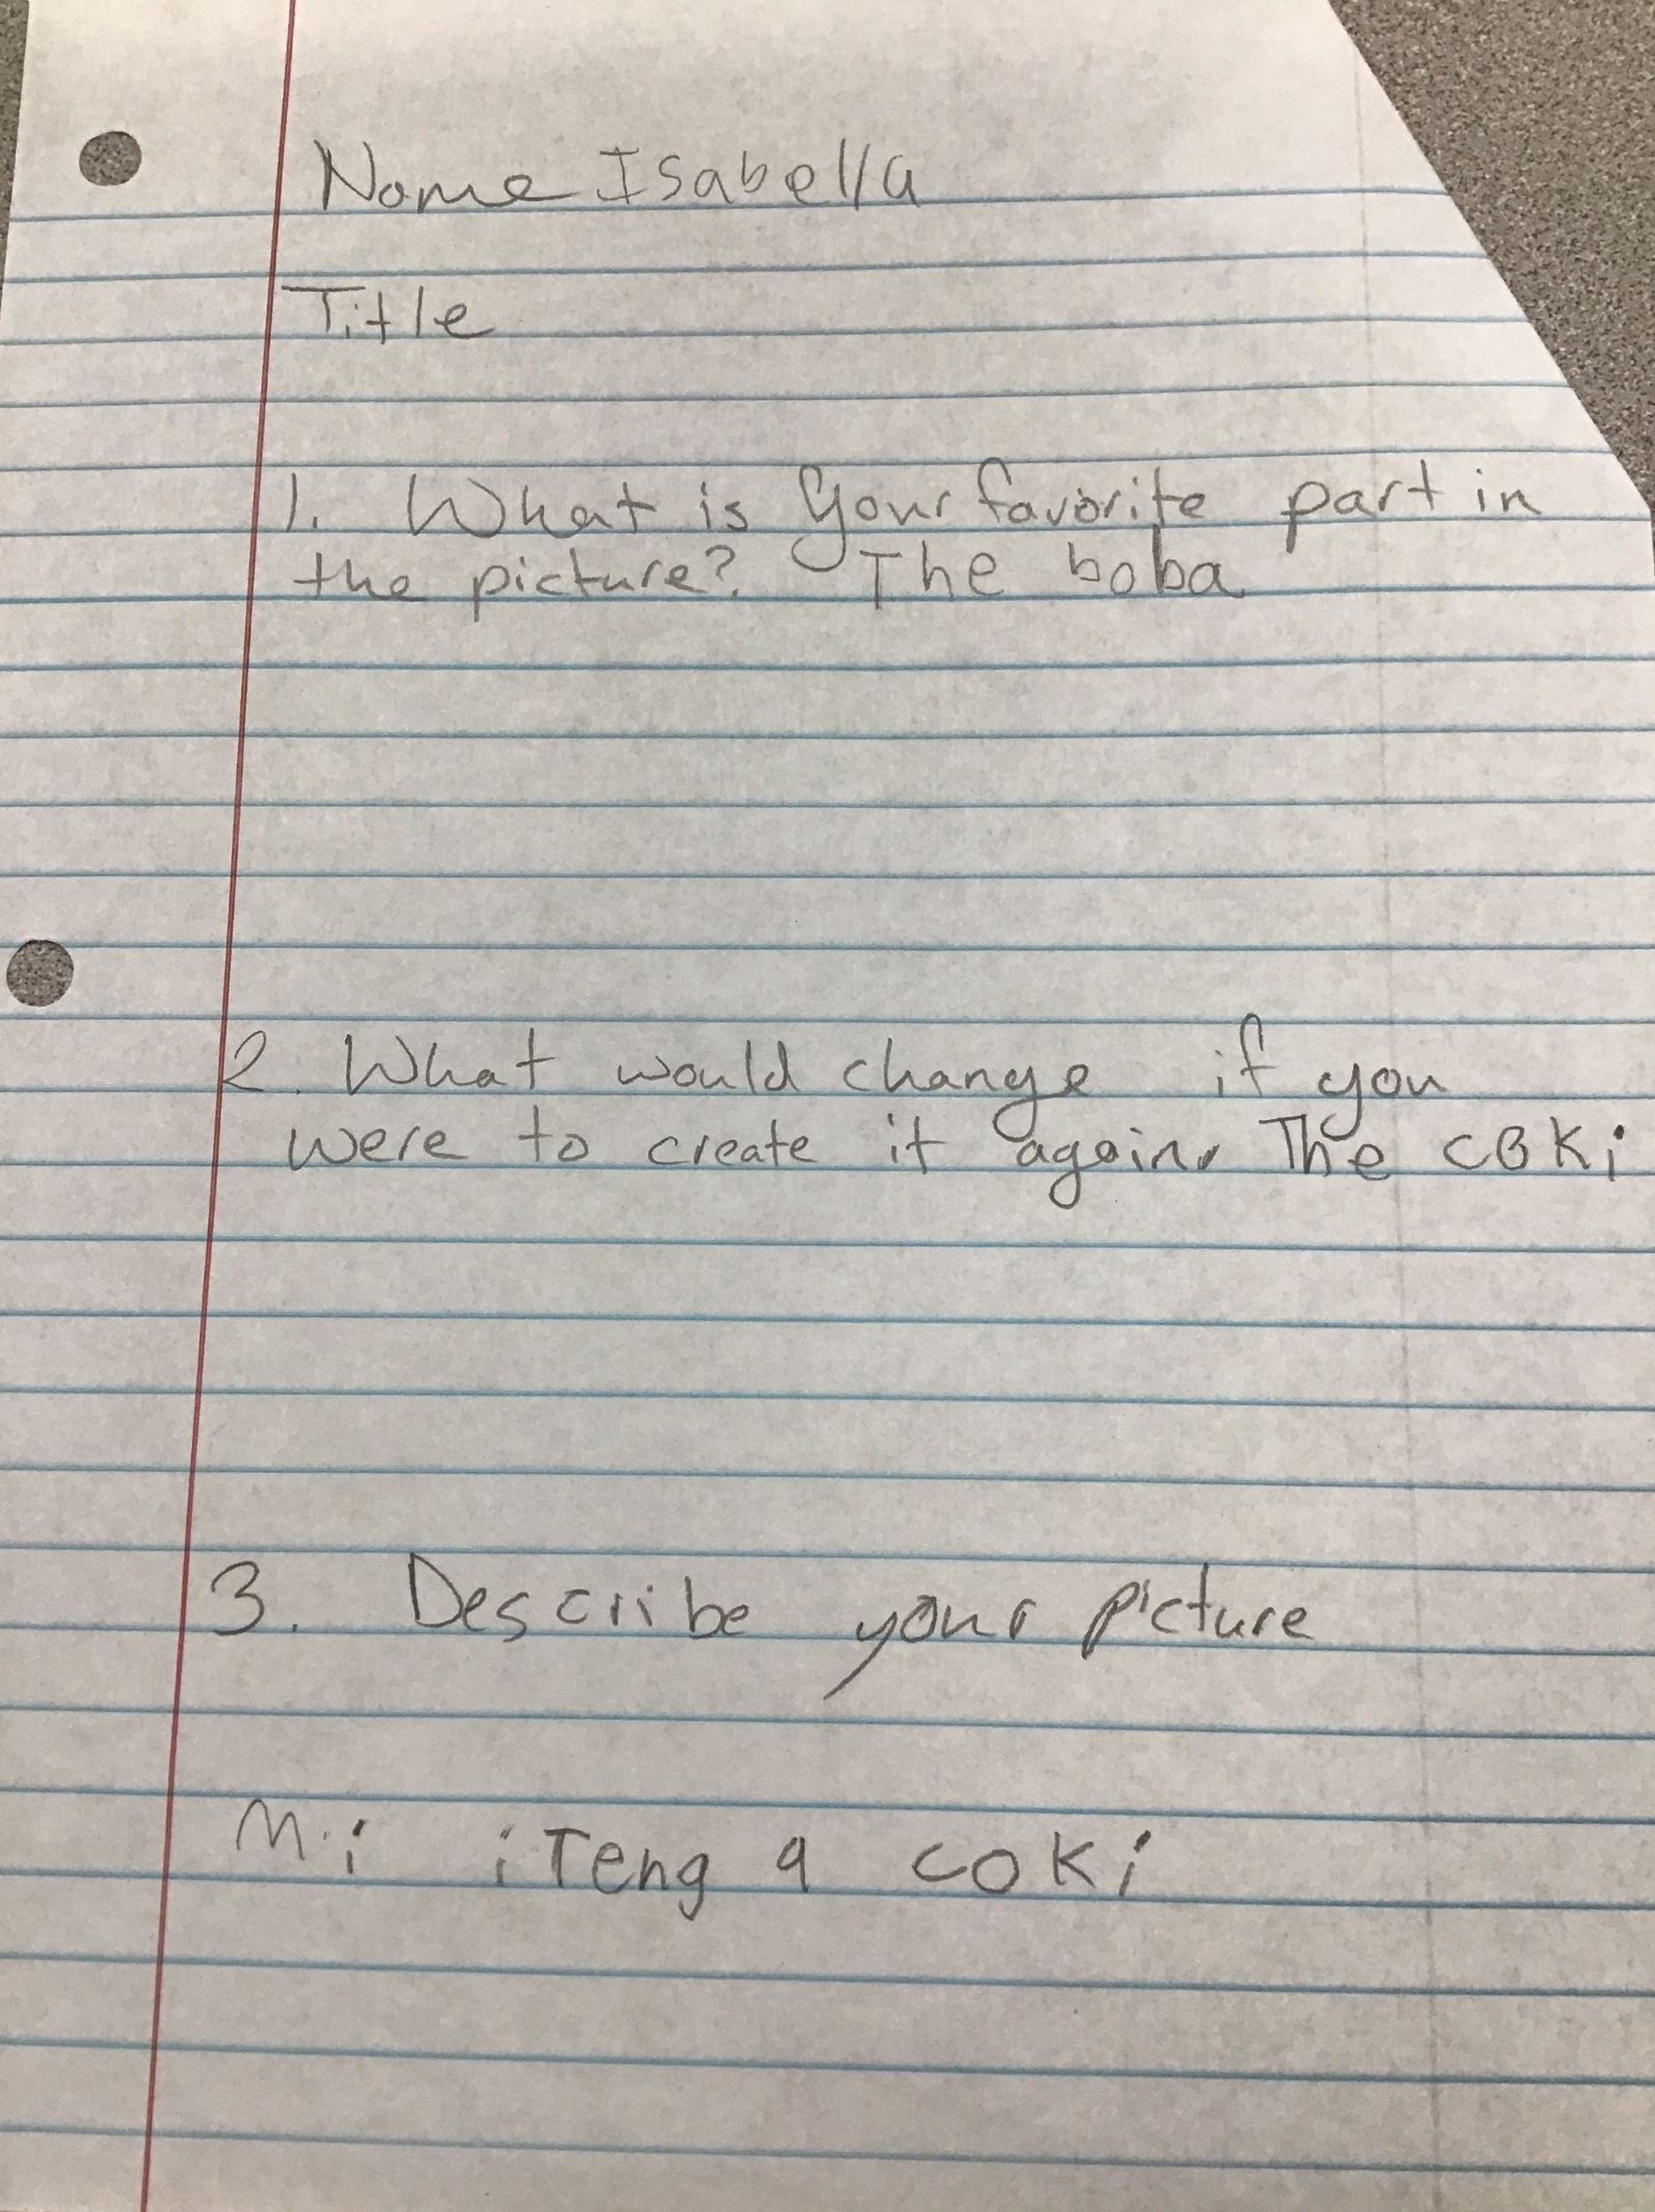 Name Isabella
Title
1. What is your favorite part in
the picture? The boba
2. What would change if you
were to create it again. The coki
3. Describe your picture
Mi iTeng a coki